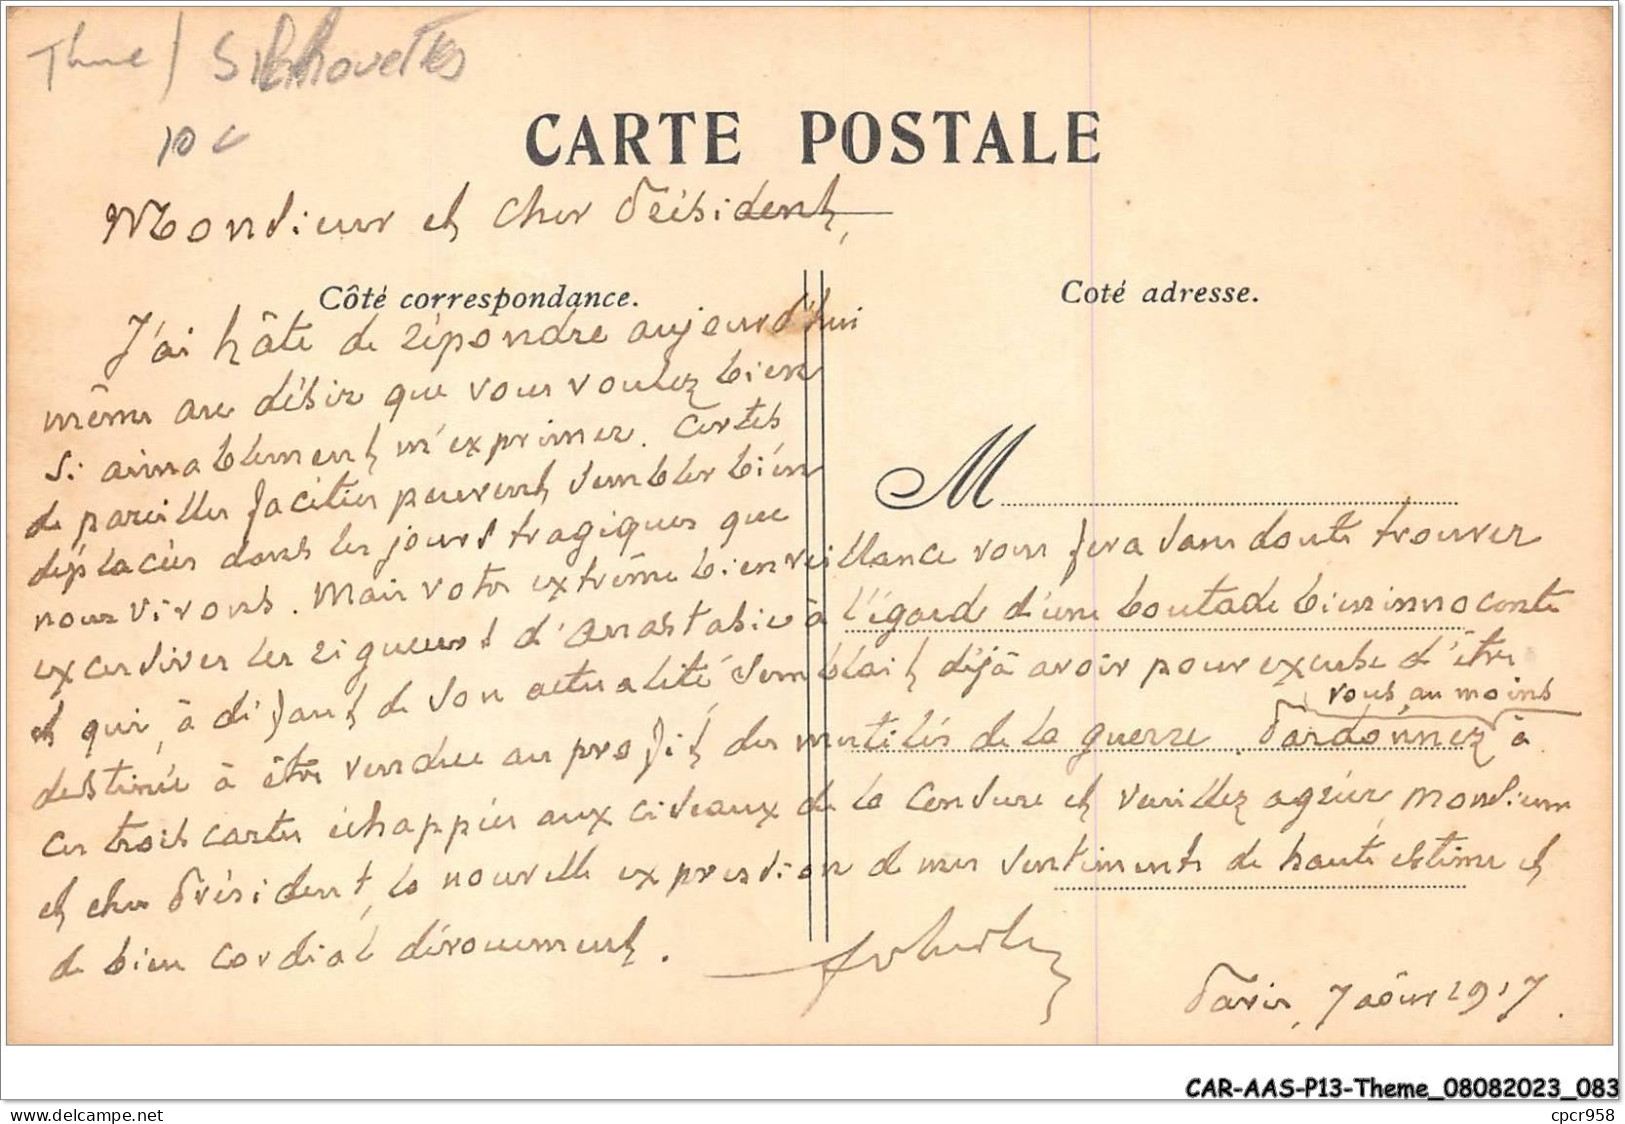 Thme / Silhouettes
10 c
CARTE POSTALE
Monsieur et cher Président,
Côté correspondance.
Coté adresse.
J'ai hâte de répondre aujourd'hui
même au désir que vous voulez bien
si aimablement m'exprimer. Certes
de pareilles facéties peuvent sembler bien
déplacées dans les jours tragiques que
M
nous vivons. Mais votre extrême bienveillance vous fera sans doute trouver
excessives les rigueurs d'Anastasie à l'égard d'une boutade bien innocente
et qui, à défaut de son actualité, semblait déjà avoir pour excuse d'être
vous, au moins
destinée à être vendue au profit des mutilés de la guerre. Pardonnez à
ces trois cartes échappées aux ciseaux de la censure et veuillez agréer, Monsieur
et cher Président, la nouvelle expression de mes sentiments de haute estime et
de bien cordial dévouement.
Paris, 7 août 1917.
CAR-AAS-P13-Theme_08082023_083
www.delcampe.net
cpcr958